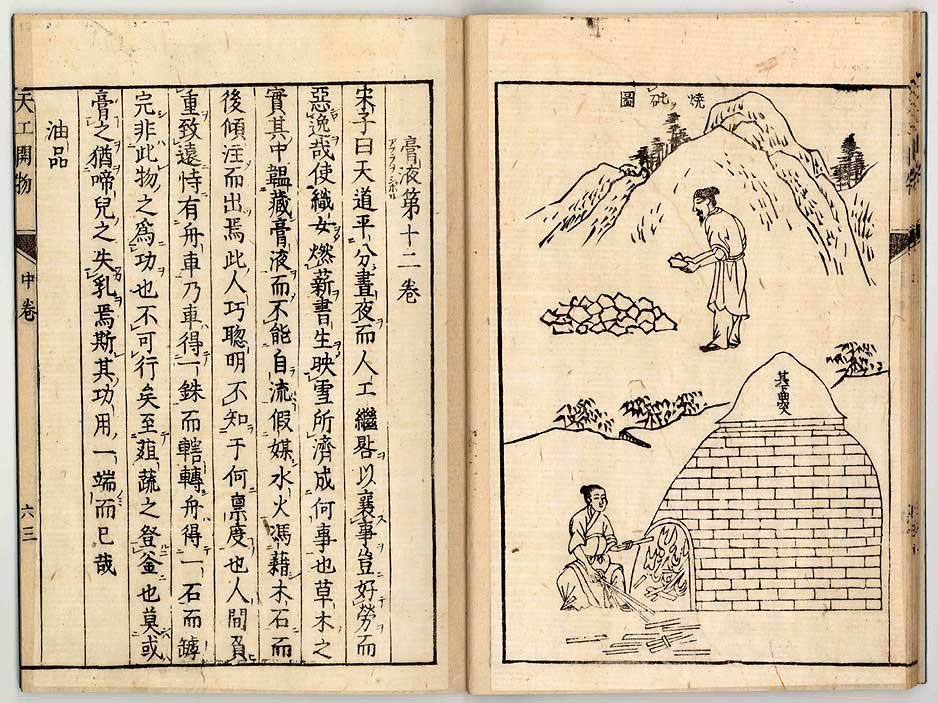 燒砒圖
其下曲突
膏液第十二卷
宋子曰天道平分晝夜而人工繼晷以襄事豈好勞而
惡逸哉使織女燃薪書生映雪所濟成何事也草木之
實其中韞藏膏液而不能自流假媒水火馮藉木石而
後傾注而出焉此人巧聰明不知于何禀度也人間負
重致遠恃有舟車乃車得一銖而轄轉舟得一石而罅
完非此物之爲功也不可行矣至葅蔬之登釜也莫或
膏之猶啼兒之失乳焉斯其功用一端而已哉
油品
天工開物 中卷 六三